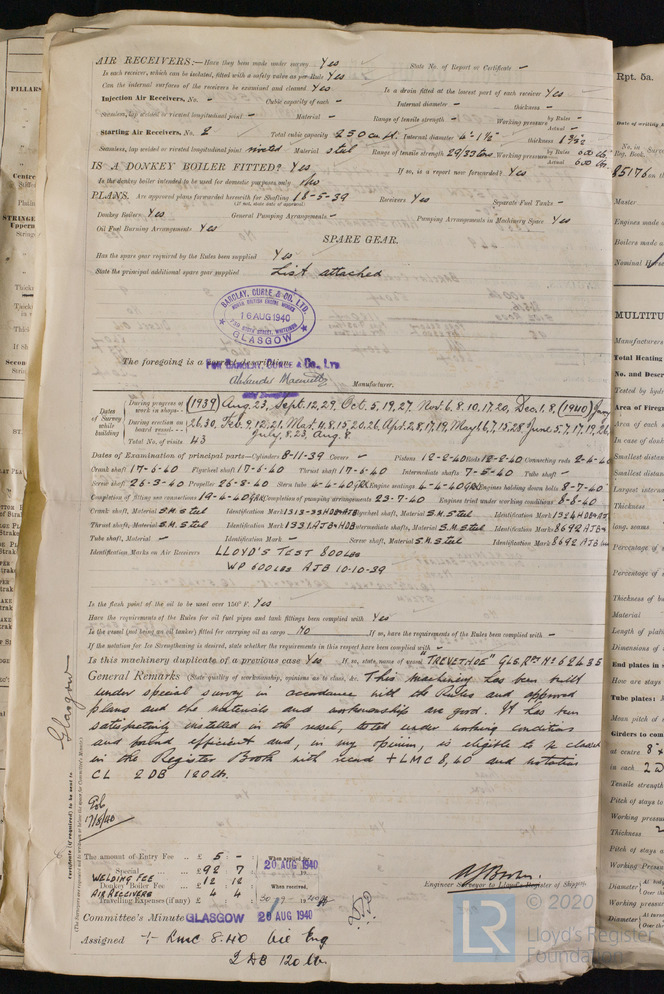 AIR RECEIVERS:—Have they been made under survey Yes State No. of Report or Certificate -
Is each receiver, which can be isolated, fitted with a safety valve as per Rule Yes
Can the internal surfaces of the receivers be examined and cleaned Yes Is a drain fitted at the lowest part of each receiver Yes
Injection Air Receivers, No. - Cubic capacity of each - Internal diameter - thickness -
Seamless, lap welded or riveted longitudinal joint - Material - Range of tensile strength - Working pressure by Rules - Actual -
Starting Air Receivers, No. 2 Total cubic capacity 250 cu ft. Internal diameter thickness
Seamless, lap welded or riveted longitudinal joint riveted Material steel Range of tensile strength 29/33 tons Working pressure by Rules 600 lbs Actual 600 lbs
IS A DONKEY BOILER FITTED? Yes If so, is a report now forwarded? Yes
Is the donkey boiler intended to be used for domestic purposes only No
PLANS. Are approved plans forwarded herewith for Shafting 18-5-39 Receivers Yes Separate Fuel Tanks -
(If not, state date of approval)
Donkey Boilers Yes General Pumping Arrangements - Pumping Arrangements in Machinery Space Yes
Oil Fuel Burning Arrangements Yes
SPARE GEAR.
Has the spare gear required by the Rules been supplied Yes
State the principal additional spare gear supplied List attached
BARCLAY, CURLE & CO. LTD.
NORTH BRITISH ENGINE WORKS
16 AUG 1940
WHITEINCH
GLASGOW
The foregoing is a correct description
FOR BARCLAY, CURLE & Co., LTD
Manufacturer.
Dates of Survey while building
During progress of work in shops - (1939) Aug. 23, Sept. 12, 29, Oct. 5, 19, 27, Nov. 6, 8, 10, 17, 20, Dec. 1, 8, (1940) Jany
During erection on board vessel - 26, 30, Feb. 9, 12, 21, Mar. 4, 8, 15, 20, 26, Apl. 2, 8, 17, 19, May 1, 6, 7, 15, 28 June 5, 7, 17, 19, 26
July, 8, 23, Aug. 8
Total No. of visits 43
Dates of Examination of principal parts—Cylinders 8-11-39 Covers - Pistons 12-2-40 Rods 12-2-40 Connecting rods 2-4-40
Crank shaft 17-6-40 Flywheel shaft 17-6-40 Thrust shaft 17-6-40 Intermediate shafts 7-5-40 Tube shaft -
Screw shaft 26-3-40 Propeller 26-3-40 Stern tube 4-4-40 Engine seatings 4-4-40 Engines holding down bolts 8-7-40
Completion of fitting sea connections 19-4-40 Completion of pumping arrangements 23-7-40 Engines tried under working conditions 8-8-40
Crank shaft, Material S.M. Steel Identification Mark 1313-33 HDB AJB Flywheel shaft, Material S.M. Steel Identification Mark 1324 HDB AJB
Thrust shaft, Material S.M. Steel Identification Mark 1331 AJB HDB Intermediate shafts, Material S.M. Steel Identification Marks 8692 AJB
Tube shaft, Material - Identification Mark - Screw shaft, Material S.M. Steel Identification Mark 8692 AJB
Identification Marks on Air Receivers LLOYD'S TEST 800 LBS
WP 600 LBS AJB 10-10-39
Is the flash point of the oil to be used over 150° F. Yes
Have the requirements of the Rules for oil fuel pipes and tank fittings been complied with Yes
Is the vessel (not being an oil tanker) fitted for carrying oil as cargo No If so, have the requirements of the Rules been complied with -
If the notation for Ice Strengthening is desired, state whether the requirements in this respect have been complied with -
Is this machinery duplicate of a previous case Yes If so, state name of vessel "TREVETHOE" GLS. RPT No 62435
General Remarks (State quality of workmanship, opinions as to class, &c. This machinery has been built
under special survey in accordance with the Rules and approved
plans and the materials and workmanship are good. It has been
satisfactorily installed in the vessel, tested under working conditions
and found efficient and, in my opinion, is eligible to be classed
in the Register Book with record +LMC 8,40 and notation
CL 2 DB 120 lb.
17/8/40
Glasgow
Certificate (if required) to be sent to
The amount of Entry Fee £ 5 : -
Special £ 92 : 7
WELDING FEE
Donkey Boiler Fee £ 12 : 12
AIR RECEIVERS £ 4 : 4
Travelling Expenses (if any) £
When applied for
20 AUG 1940
When received,
Engineer Surveyor to Lloyd's Register of Shipping.
Committee's Minute GLASGOW 20 AUG 1940
Assigned + LMC 8.40 Oil Eng
2 DB 120 lb.
© 2020
LR
Lloyd's Register
Foundation
Rpt. 5a.
85176
Master
Engines made
Boilers made
Nominal
MULTITU
Manufacturers
Total Heating
No. and Descr
Tested by hydr
Area of each
In case of doub
Smallest dista
Smallest dista
Largest intern
Thickness of
long. seams
Percentage of
Percentage of
Thickness of bu
Material
Length of plat
Dimensions of
End plates in
How are stays
Tube plates:
Mean pitch of
Girders to com
at centre
in each
Tensile strength
Pitch of stays to
Working pressur
Thickness
Pitch of stays a
Working Pressur
Diameter
Working pressure
Diameter
PILLARS